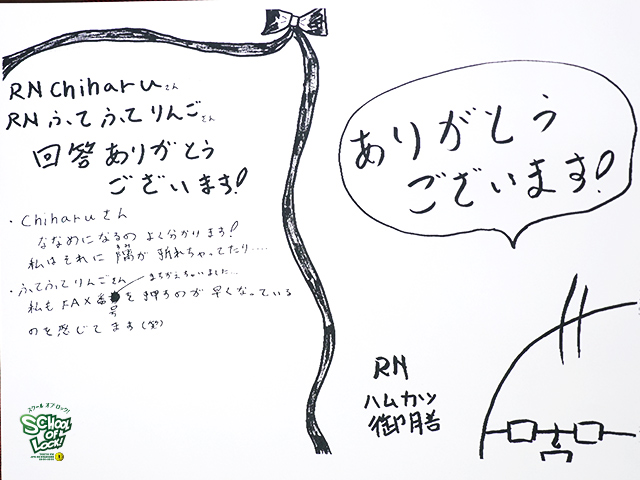 RN Chiharuさん
RN ふてふてりんごさん
回答ありがとう
ございます!
・Chiharuさん
ななめになるの よく分かります!
私はそれに 隅が 折れちゃってたり....
・ふてふてりんごさん
まちがえちゃいました...
私も FAX番号を押すのが 早くなっている
のを感じてます(笑)
スクール オブ ロック!
SCHOOL
OF
LOCK!
ありがとう
ございます!
RN
ハムカツ
御膳